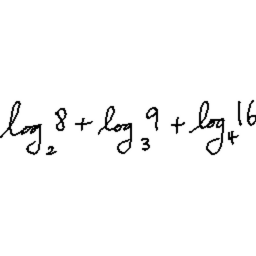 log₂ 8 + log₃ 9 + log₄ 16